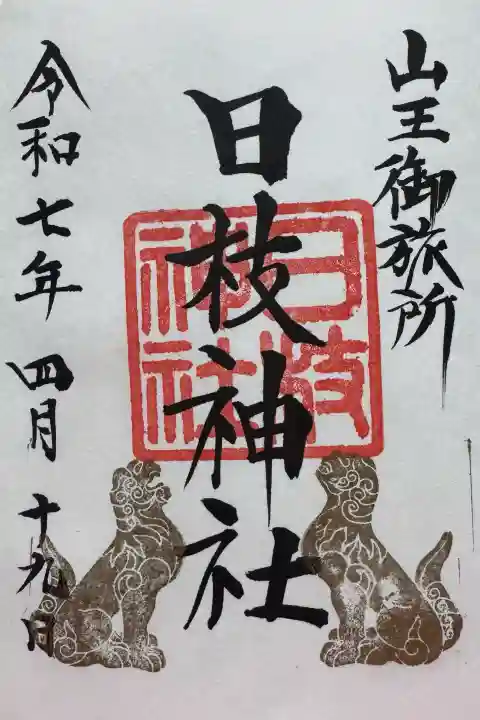 山王御旅所
日枝神社
日枝
神社
令和七年 四月 十九日